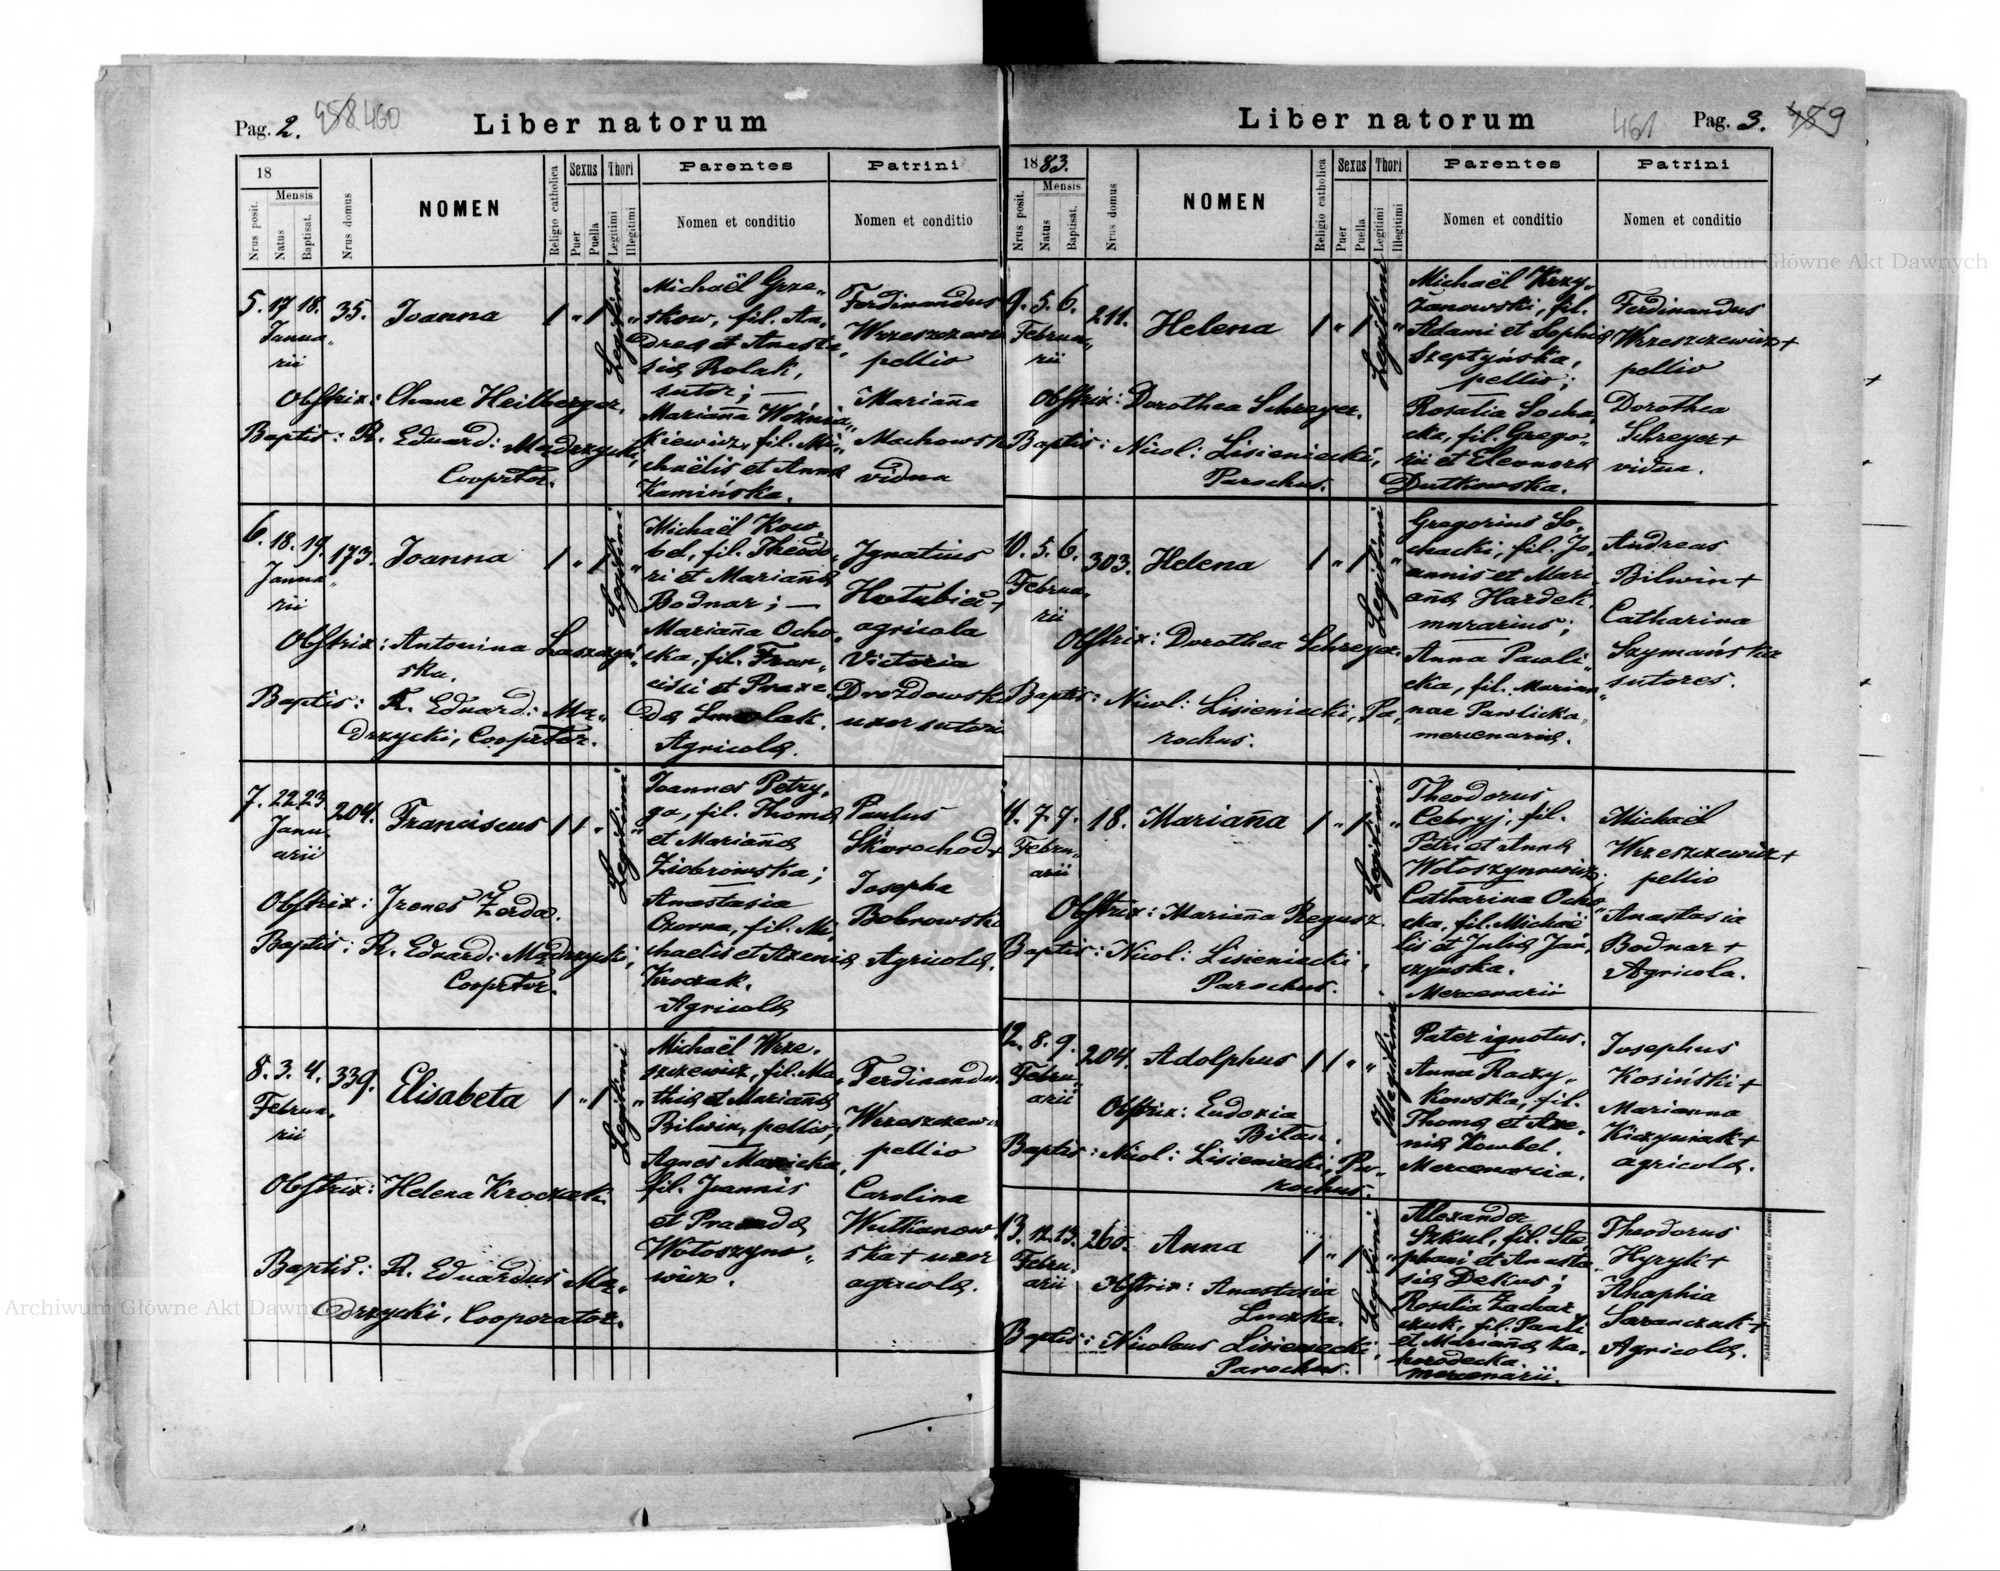 Pag. 2. 458 460
Liber natorum
18
Nrus posit.
Mensis
Natus
Baptisat.
Nrus domus
NOMEN
Religio catholica
Sexus
Puer
Puella
Thori
Legitimi
Illegitimi
Parentes
Nomen et conditio
Patrini
Nomen et conditio
5. 17 18. 35. Joanna
Janua„
rii
Obstrix: Chane Heilberger.
Baptis: R. Eduard: Mądrzycki,
Cooprtor.
Legitimi
Michaël Grze„
skow, fil. An„
dreæ et Anasta„
siæ Rolak,
sutor; —
Marianna Woźnia„
kiewicz, fil. Mi„
chaëlis et Annæ
Kamińska.
Ferdinandus
Wrzeszczewi
pellio
Marianna
Machowsk
vidua
6. 18. 19. 173. Joanna
Janua„
rii
Obstrix: Antonina Laszczyń„
ska.
Baptis: R. Eduard: Mą„
drzycki, Cooprtor.
Legitimi
Michaël Kow„
bel, fil. Theodo„
ri et Mariannæ
Bodnar; —
Marianna Ocho„
cka, fil. Fran„
cisci et Praxe„
dæ Smolak.
Agricolæ.
Ignatius
Hołubiec +
agricola
Victoria
Drozdowska
uxor sutori
7. 22 23. 204. Franciscus
Janu„
arii
Obstrix: Irenes Żerda.
Baptis: R. Eduard: Mądrzycki,
Cooprtor.
Legitimi
Joannes Petry„
ga, fil. Thomæ
et Mariannæ
Ziobrowska;
Anastasia
Czorna, fil. Mi„
chaelis et Axeniæ
Kroczak.
Agricolæ
Paulus
Skorochod +
Josepha
Bobrowska
Agricolæ.
8. 3. 4. 339. Elisabeta
Februa„
rii
Obstrix: Helena Kroczak.
Baptis: R. Eduardus Mą„
drzycki, Cooperator.
Legitimi
Michaël Wrze„
szczewicz, fil. Ma„
thiæ et Mariannæ
Bilwin, pellio;
Agnes
fil. Joannis
et Praxedæ
Wołoszyno„
wicz.
Ferdinandus
Wrzeszczewi
pellio
Carolina
Wutkanow
ska + uxor
agricolæ.
Liber natorum
461 Pag. 3. 459
1883.
Nrus posit.
Mensis
Natus
Baptisat.
Nrus domus
NOMEN
Religio catholica
Sexus
Puer
Puella
Thori
Legitimi
Illegitimi
Parentes
Nomen et conditio
Patrini
Nomen et conditio
9. 5. 6. 211. Helena
Februa„
rii
Obstrix: Dorothea Schreyer.
Baptis: Nicol: Lisieniecki,
Parochus.
Legitimi
Michaël Krzy„
żanowski, fil.
Adami et Sophiæ
Szeptyńska,
pellio;
Rosalia Socha„
cka, fil. Grego„
rii et Eleonoræ
Dutkowska.
Ferdinandus
Wrzeszczewicz +
pellio
Dorothea
Schreyer +
vidua.
10. 5. 6. 303. Helena
Februa„
rii
Obstrix: Dorothea Schreyer.
Baptis: Nicol: Lisieniecki, Pa„
rochus.
Legitimi
Gregorius So„
chacki, fil. Jo„
annis et Mari„
annæ Hardek.
murarius;
Anna Pawli„
cka, fil. Marian„
nae Pawlicka„
mercenariæ.
Andreas
Bilwin +
Catharina
Szymańska
sutores.
11. 7. 7. 18. Marianna
Febru„
arii
Obstrix: Marianna Regusz.
Baptis: Nicol: Lisieniecki,
Parochus.
Legitimi
Theodorus
Cebryj, fil.
Petri et Annæ
Wołoszynowicz;
Catharina Ocho„
cka, fil. Michaë„
lis et Juliæ Jan„
czyńska.
Mercenarii
Michaël
Wrzeszczewicz +
pellio
Anastasia
Bodnar +
Agricola.
12. 8. 9. 204. Adolphus
Febru„
arii
Obstrix: Eudoxia
Bilan.
Baptis: Nicol: Lisieniecki, Pa„
rochus.
Illegitimi
Pater ignotus.
Anna Raczy„
kowska, fil.
Thomæ et Axe„
niæ Kowbel.
Mercenaria.
Josephus
Kosiński +
Marianna
Kiczyniak +
agricolæ.
13. 12. 13. 260. Anna
Febru„
arii
Obstrix: Anastasia
Luczka.
Baptis: Nicolaus Lisieniecki,
Parochus.
Legitimi
Alexander
Szkul, fil. Ste„
phani et Anasta„
siæ Dekus;
Rosalia Zachar„
czuk, fil. Pauli
et Mariannæ Za„
horodecka.
mercenarii.
Theodorus
Hyryk +
Ahaphia
Saranczuk +
Agricolæ.
Archiwum Główne Akt Dawnych
Archiwum Główne Akt Dawnych